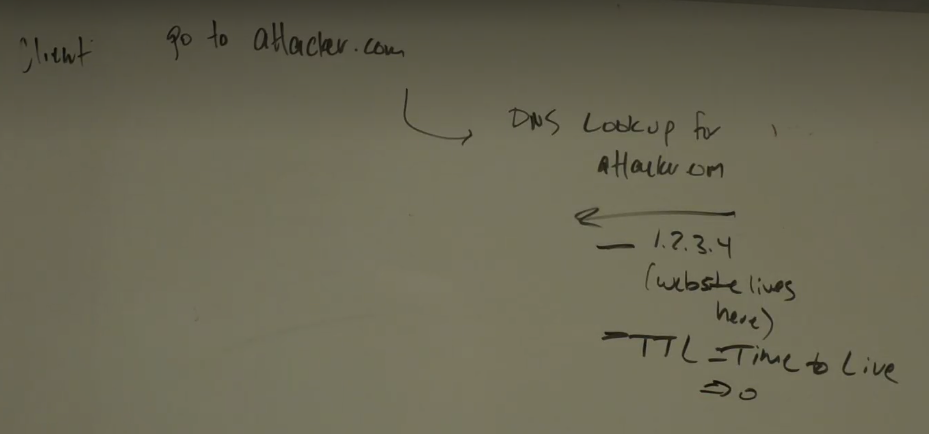 Client go to attacker.com
DNS Lookup for
attacker.com
— 1.2.3.4
(website lives
here)
- TTL = Time to Live
⇒ 0